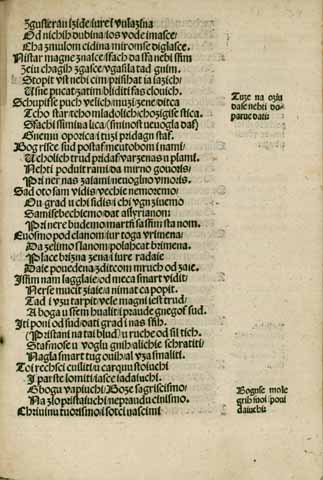 Zguster au izide iure i vulazſna
Od nichih dubina ios vode imaſce
Cha znulom cidina mirom ſe diglaſce.
Niſtar magne znalce ſfach da ſfa nebi ſfim
Zeiu chagih zgaſce vgaſila tad gnim.
Stopit viſt nebi cim priſhat ia iazich
Uſne pucat zatim bliditi fas clouich.
Schupiſſe puch velich muzi zene ditca
Tcho ſtar tcho mladolich cho zigiſe ſtica.
Gnemu oporica i tuzi pridagn ſtaf.
Bog riſce ſud poſtaf meu tobom i nami
U cholich trud pridaf varzenas u plami.
Nehti poduit rami da mirno govoris
Pri ner nas za iami neuoglno vmoris.
Sad oto ſam vidis vechie nemoremo
Ou grad u chi ſidis i chi vgn ziuemo
Sami ſe bechiemo dat aſſyrianom
Pri nere budemo martfi ſa ſfim ſta nom.
Euo ſmo pod clanom iur toga vrimena
Da zelimo ſlanom polaheat brimena.
Place brizna zena i iure radaie
Daie povedena z ditcom mruch od zaie.
Iſfim nam ſagglaie od meca ſmart vidit
Ner ſe mucit zaie a nimat ca popit.
Tad i vzu tarpit vele magni ieſt trud
A boga u ſſem hualit i praude gnegof ſud.
Iti poni od ſud dati grad i nas ſfih.
(Priſtani na tai blud) u ruche od ſil tich.
Naglas ſmart tug ouih al vza ſmaliti.
Toi rechſci cuiliti u carqun ſtoiuchi
I parſte lomiti iaſce iadaiuchi.
G bogu vapiuchi Boze ſagriſciſmo
Na zlo priſtaiuchi nepraudu ciniſmo.
Chriuinu tuoriſmo i ſotci naſcimi
Tuze na oziu
daſe nehti do-
parue datii
Bogu ſe mole
grih ſuoi poui
daiuchi